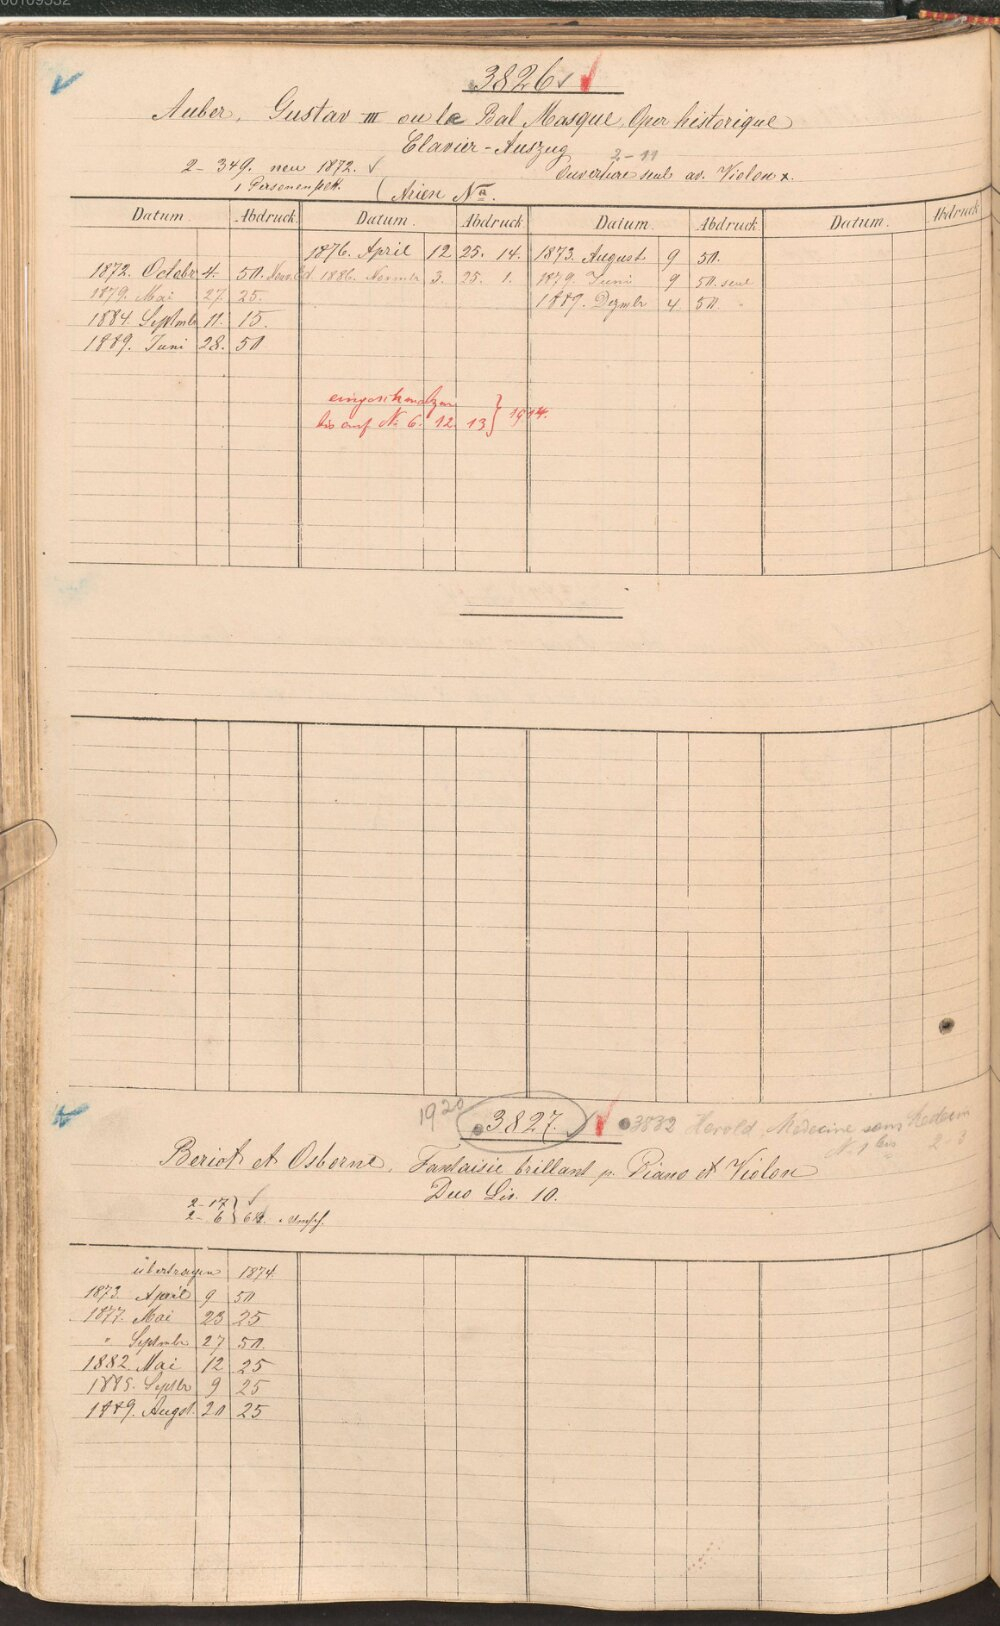 3826.
Auber, Gustav III ou le Bal Masque, Oper historique
Clavier-Auszug
2-11
2-349. neu 1872. √
Ouverture seul av. Violon x.
1 Personen
(Arien No.
Datum. Abdruck Datum. Abdruck Datum. Abdruck Datum. Abdruck
1876. April 12 25. 14. 1873. August 9 50.
1872. Octobr 4. 50. 1886. 3. 25. 1. 1879. Juni 9 50. seul
1879. Mai 27 25. 1889. Dezmbr 4. 50.
1884. Septmbr 11. 15.
1889. Juni 28. 50
eingeschmolzen
bis auf No. 6. 12. 13} 1914.
1920 3827. √ 3832 Herold, Médecine sans Medecin
N. 1 bis 2-3
Beriot et Osborne, Fantaisie brillant p. Piano et Violon
Duo Liv. 10.
2-17} √
2-6}
übertragen 1874.
1873. April 9 50
1877. Mai 23 25
" Septmbr 27 50.
1882. Mai 12 25
1885. Septbr 9 25
1889. Augst. 20 25